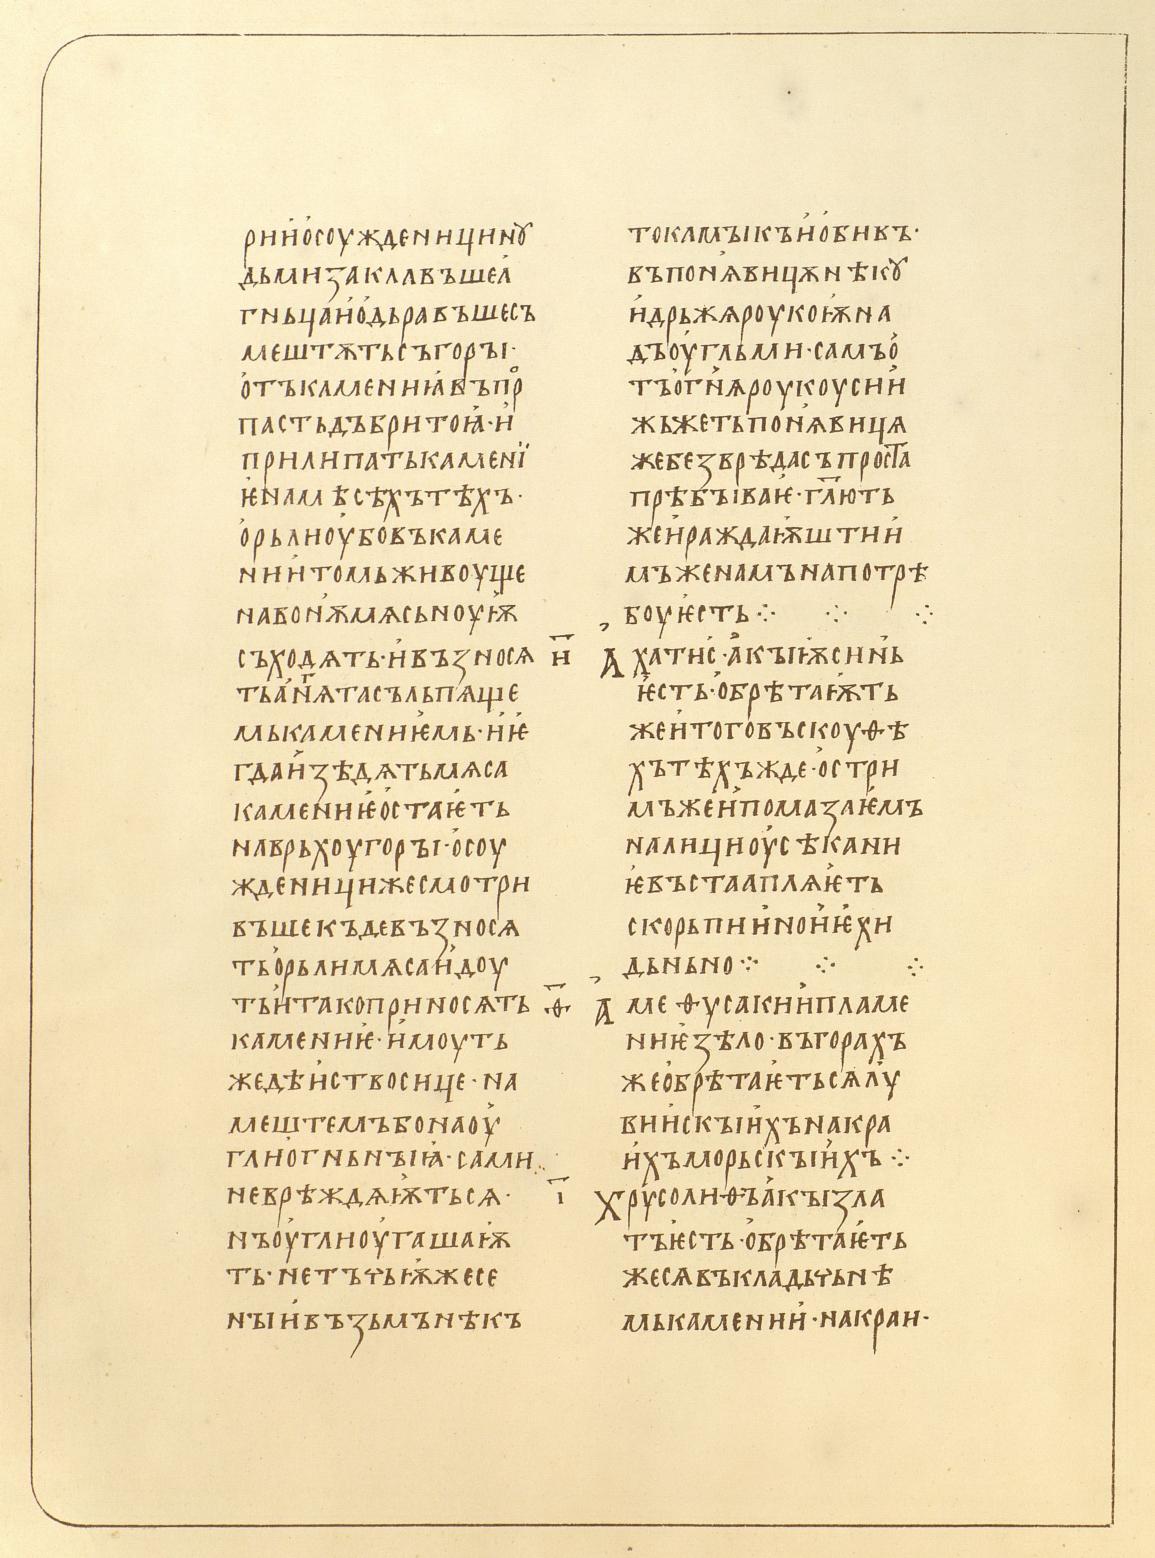 рии҆о҆соужденицинꙋ
дьмиꙁаклавъшеа҆
гньцаи҆о҆дьравъшесъ
мештѫтьсъгоры·
о҆тъкамениꙗ҆въпро
пастьдъбритоѩ·и҆
прилипатькамениї
ѥ҆намѣсѣхътѣхъ·
о҆рьлиоу҆бовъкаме
нии҆томьживоуще
навон҄ѫмѧсьноую҆ѭ
съходѧть·и҆въꙁносѧ
тьа҆н҄гѧтасъльпѧще
мькамениѥ҆мь·и҆ѥ҆
гдаи҆ꙁѣдѧтьмѧса
камениѥ҆о҆стаѥ҆ть
наврьхоугоры·о҆соу
жденицижесмотри
въшекъдевъꙁносѧ
тьо҆рьлимѧсаи҆доу
тьи҆такоприносѧть
камениѥ҆·и҆моуть
жедѣи҆ствосице·на
мештемъбонаоу҆
глиѡгньныѩ·сами
неврѣждаѭтьсѧ·
нъоу҆глиоу҆гашаѭ
ть·нетъчьѭ҆жесе
ныи҆въꙁьмънѣкъ
токамыкъи҆о҆бивъ·
въпон҄ѧвицѫнѣкꙋ
и҆држѧроукоѭ҆на
дъоу҆гльми·самъо҆
тъо҆гн҄ѧроукоусии҆
жьжетьпон҄ѧвицѧ
жебеꙁврѣдасъпроста
прѣбываѥ҆·гл҃ють
жеи҆раждаѭ҆штии҆
мъженамънапотрѣ
боуѥ҆сть ⁘ ⁘ ⁘
и҃ Ахатис·а҆кыѭ҆сиинь
ѥ҆сть·о҆брѣтаѭ҆ть
жеи҆тоговъскоуѳѣ
хътѣхъжде·о҆стри
мъжеи҆помаꙁаѥ҆мъ
налициоу҆сѣкани
ѥ҆въстаапляѥ҆ть
скорьпиинои҆ѥ҆хи
дьньно ⁘ ⁘ ⁘
ѳ҃ Амеѳусакии҆пламе
ниѥ҆ꙁѣло·въгорахъ
жео҆брѣтаѥ҆тьсѧлѵ
вии҆скыи҆хънакра
и҆хъморьскыи҆хъ ⁘
і҃ Хрѵсолиѳъа҆кыꙁла
тъѥ҆сть·о҆брѣтаѥ҆ть
жесѧвъкладьчьнѣ
мькамении҆·накраи·